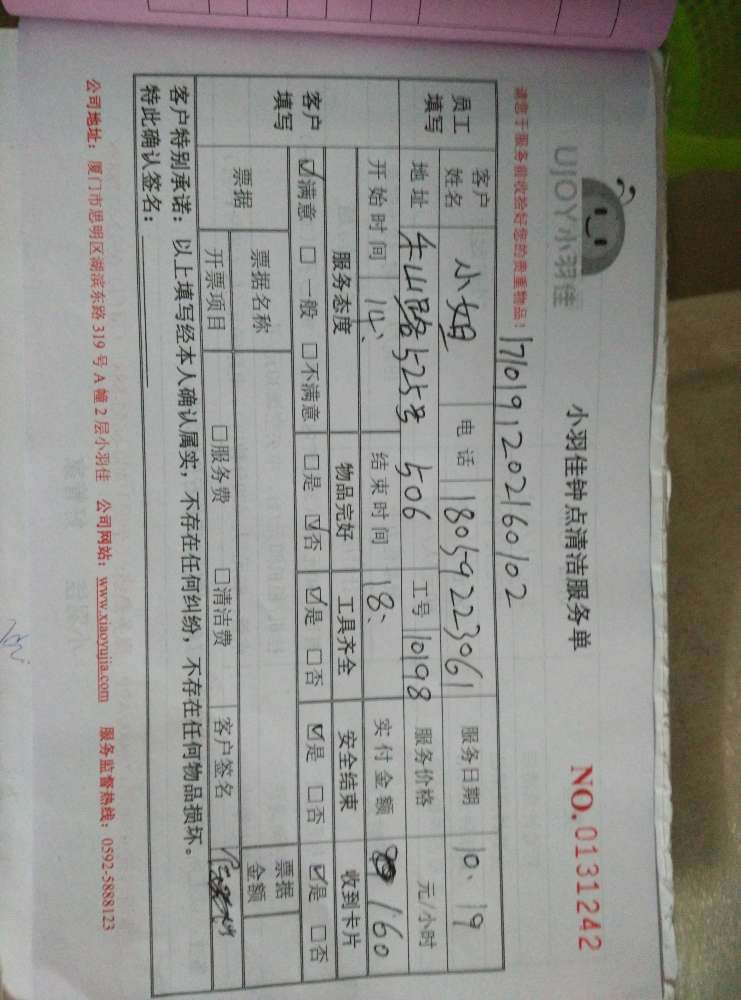 UJOY小羽佳
小羽佳钟点清洁服务单
NO.0131242
请您于服务前收捡好您的贵重物品!
1710191202160102
员工填写
客户姓名 小姐 电话 18059223061 服务日期 10、19
地址 牛山路525号 506 工号 10198 服务价格 元/小时
开始时间 14、 结束时间 18、 实付金额 160
客户填写
服务态度 物品完好 工具齐全 安全结束 收到卡片
☑满意 □一般 □不满意 □是 ☑否 ☑是 □否 ☑是 □否 ☑是 □否
票据 票据名称 票据金额
开票项目 □服务费 □清洁费 客户签名
客户特别承诺:以上填写经本人确认属实,不存在任何纠纷,不存在任何物品损坏。
特此确认签名:
公司地址:厦门市思明区湖滨东路319号A幢2层小羽佳 公司网站:www.xiaoyujia.com 服务监督热线:0592-5888123